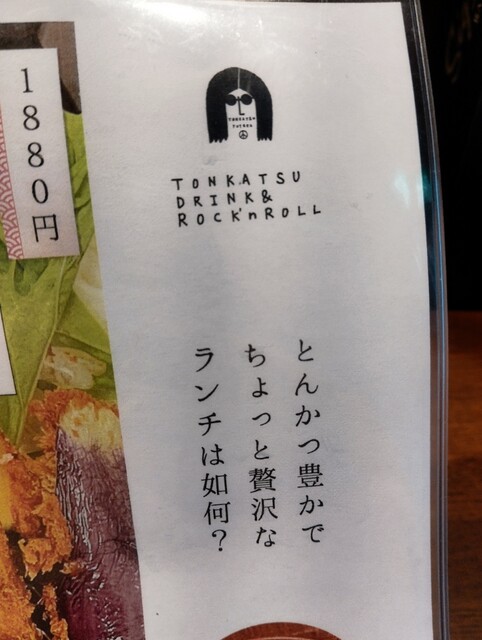 TONKATSU
DRINK&
ROCK'nROLL
とんかつ豊かで
ちょっと贅沢な
ランチは如何？
1880円